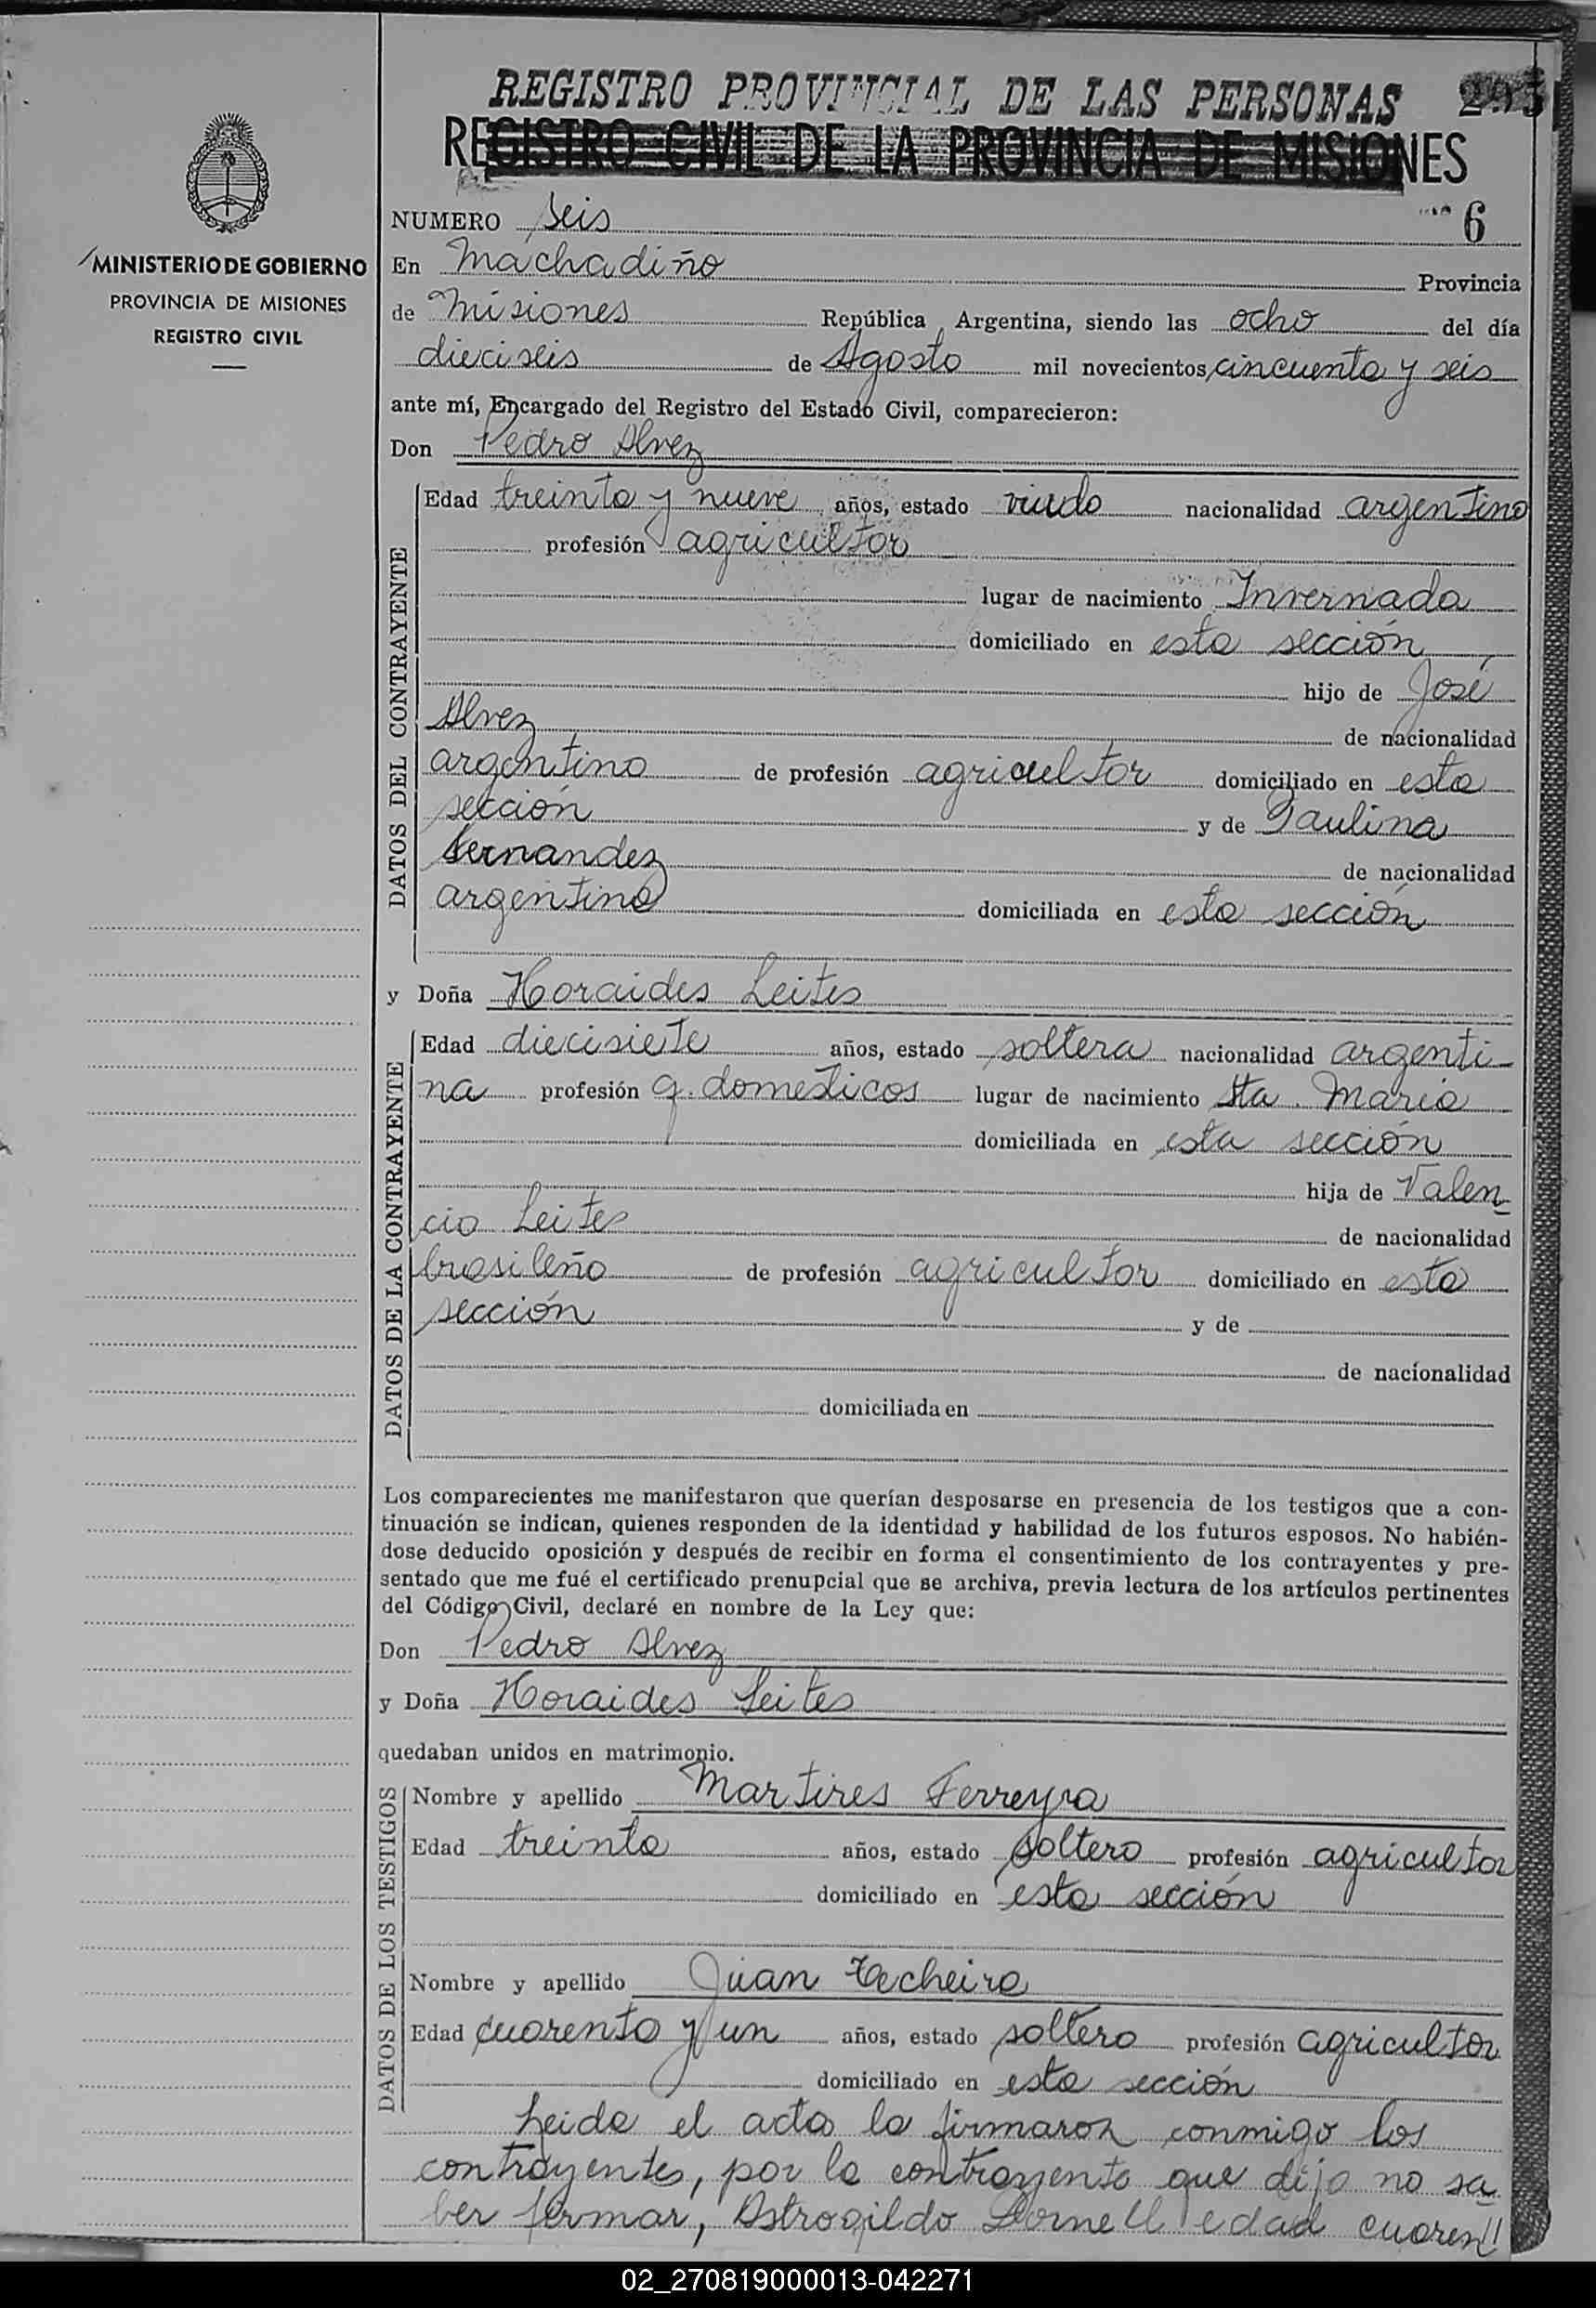 REGISTRO PROVINCIAL DE LAS PERSONAS
REGISTRO CIVIL DE LA PROVINCIA DE MISIONES
MINISTERIO DE GOBIERNO
PROVINCIA DE MISIONES
REGISTRO CIVIL
NUMERO seis 6
En Machadiño Provincia
de Misiones República Argentina, siendo las ocho del día
dieciseis de Agosto mil novecientos cincuenta y seis
ante mí, Encargado del Registro del Estado Civil, comparecieron:
Don Pedro Alvez
DATOS DEL CONTRAYENTE
Edad treinta y nueve años, estado viudo nacionalidad argentino
profesión agricultor
lugar de nacimiento Invernada
domiciliado en esta sección
hijo de José
Alvez de nacionalidad
argentino de profesión agricultor domiciliado en esta
sección y de Paulina
Fernandez de nacionalidad
argentina domiciliada en esta sección
y Doña Horaides Leites
DATOS DE LA CONTRAYENTE
Edad diecisiete años, estado soltera nacionalidad argenti-
na profesión q. domesticos lugar de nacimiento Sta. Maria
domiciliada en esta sección
hija de Valen-
cio Leites de nacionalidad
brasileño de profesión agricultor domiciliado en esta
sección y de
de nacionalidad
domiciliada en
Los comparecientes me manifestaron que querían desposarse en presencia de los testigos que a con-
tinuación se indican, quienes responden de la identidad y habilidad de los futuros esposos. No habién-
dose deducido oposición y después de recibir en forma el consentimiento de los contrayentes y pre-
sentado que me fué el certificado prenupcial que se archiva, previa lectura de los artículos pertinentes
del Código Civil, declaré en nombre de la Ley que:
Don Pedro Alvez
y Doña Horaides Leites
quedaban unidos en matrimonio.
DATOS DE LOS TESTIGOS
Nombre y apellido Martires Ferreyra
Edad treinta años, estado soltero profesión agricultor
domiciliado en esta sección
Nombre y apellido Juan Techeira
Edad cuarenta y un años, estado soltero profesión agricultor
domiciliado en esta sección
Leida el acta la firmaron conmigo los
contrayentes, por la contrayente que dijo no sa-
ber firmar, Astrogildo Dornell edad cuaren//
02_270819000013-042271